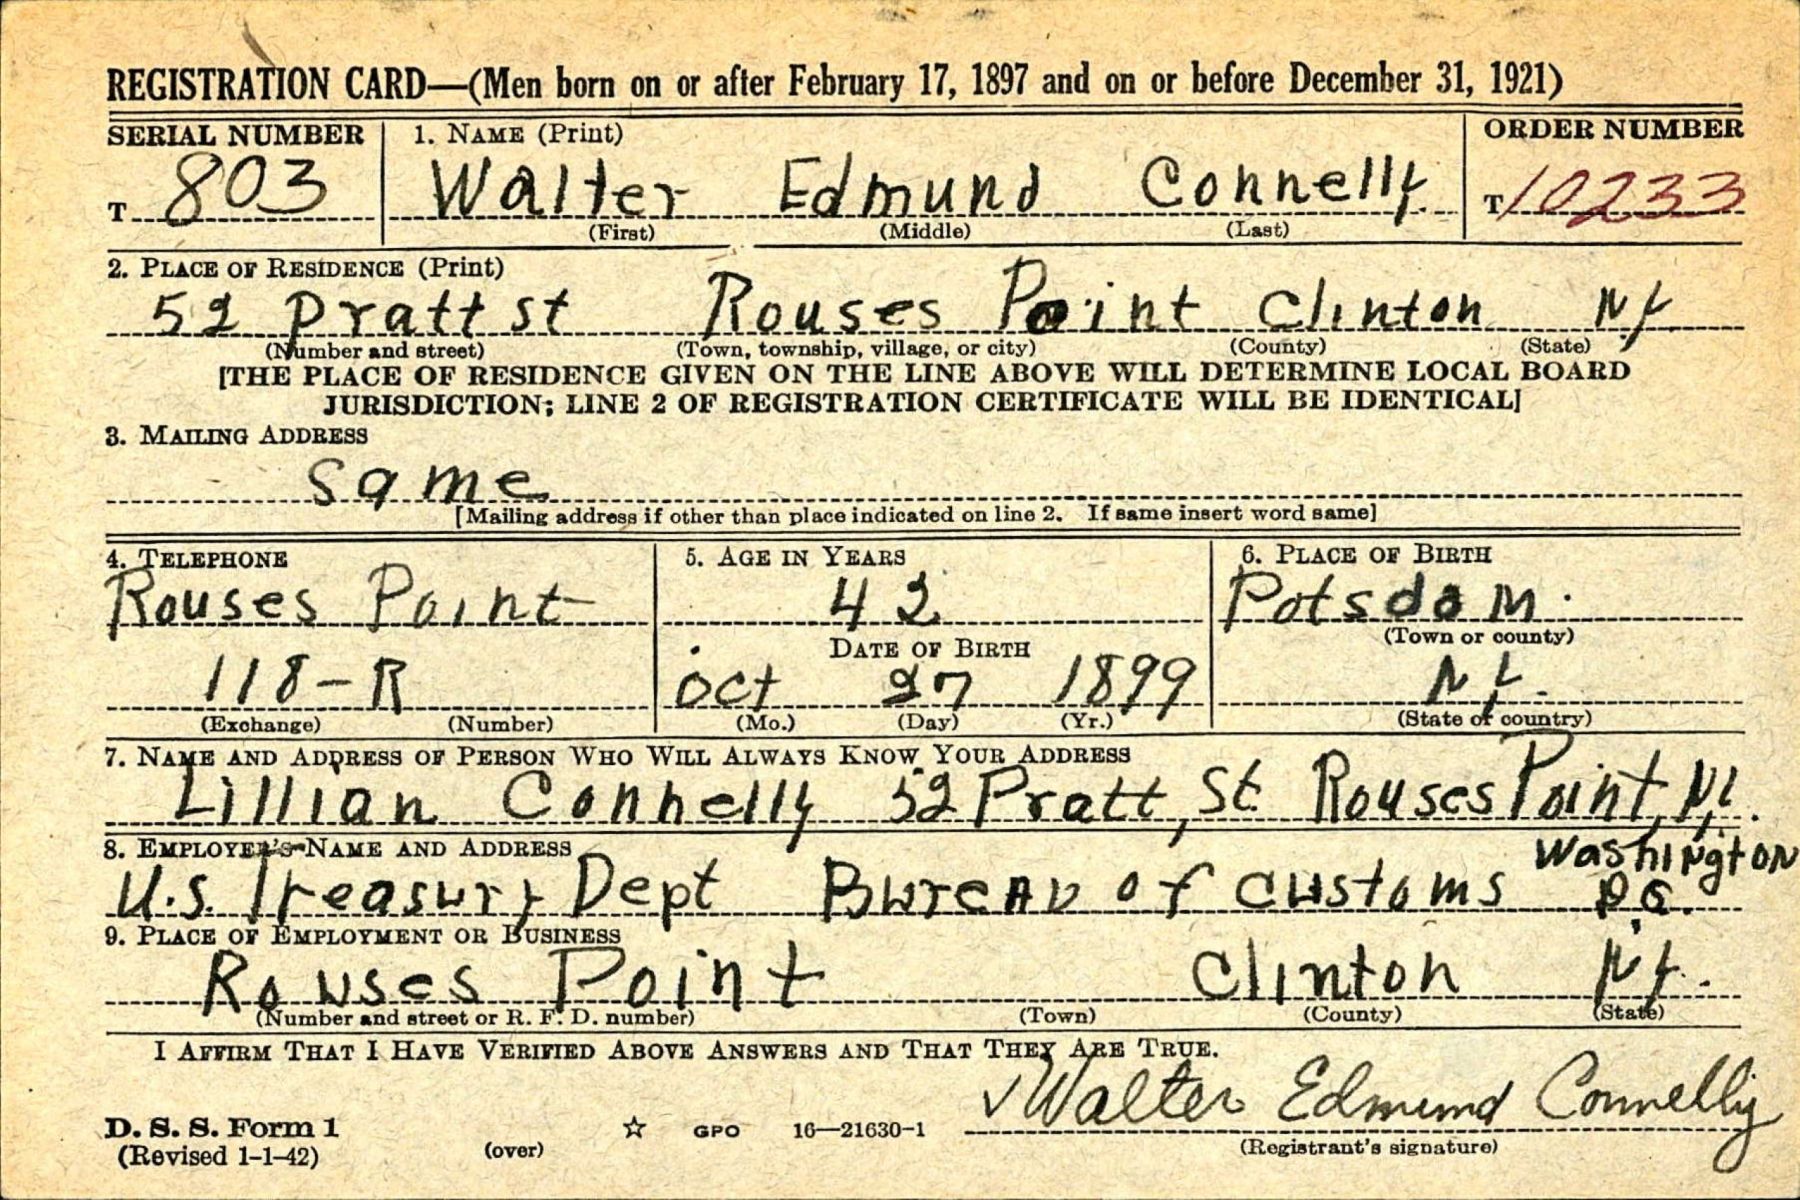 REGISTRATION CARD—(Men born on or after February 17, 1897 and on or before December 31, 1921)
SERIAL NUMBER 1. NAME (Print) ORDER NUMBER
T 803 Walter Edmund Connelly T 10233
(First) (Middle) (Last)
2. PLACE OF RESIDENCE (Print)
52 Pratt st Rouses Point Clinton N.Y.
(Number and street) (Town, township, village, or city) (County) (State)
[THE PLACE OF RESIDENCE GIVEN ON THE LINE ABOVE WILL DETERMINE LOCAL BOARD
JURISDICTION; LINE 2 OF REGISTRATION CERTIFICATE WILL BE IDENTICAL]
3. MAILING ADDRESS
same
[Mailing address if other than place indicated on line 2. If same insert word same]
4. TELEPHONE 5. AGE IN YEARS 6. PLACE OF BIRTH
Rouses Point 42 Potsdam.
DATE OF BIRTH (Town or county)
118-R Oct 27 1899 N.Y.
(Exchange) (Number) (Mo.) (Day) (Yr.) (State or country)
7. NAME AND ADDRESS OF PERSON WHO WILL ALWAYS KNOW YOUR ADDRESS
Lillian Connelly 52 Pratt, St. Rouses Point, N.Y.
8. EMPLOYER'S NAME AND ADDRESS Washington
U.S. Treasury Dept Bureau of Customs D.C.
9. PLACE OF EMPLOYMENT OR BUSINESS
Rouses Point Clinton N.Y.
(Number and street or R. F. D. number) (Town) (County) (State)
I AFFIRM THAT I HAVE VERIFIED ABOVE ANSWERS AND THAT THEY ARE TRUE.
Walter Edmund Connelly
D. S. S. Form 1 GPO 16—21630-1
(Revised 1-1-42) (over) (Registrant's signature)